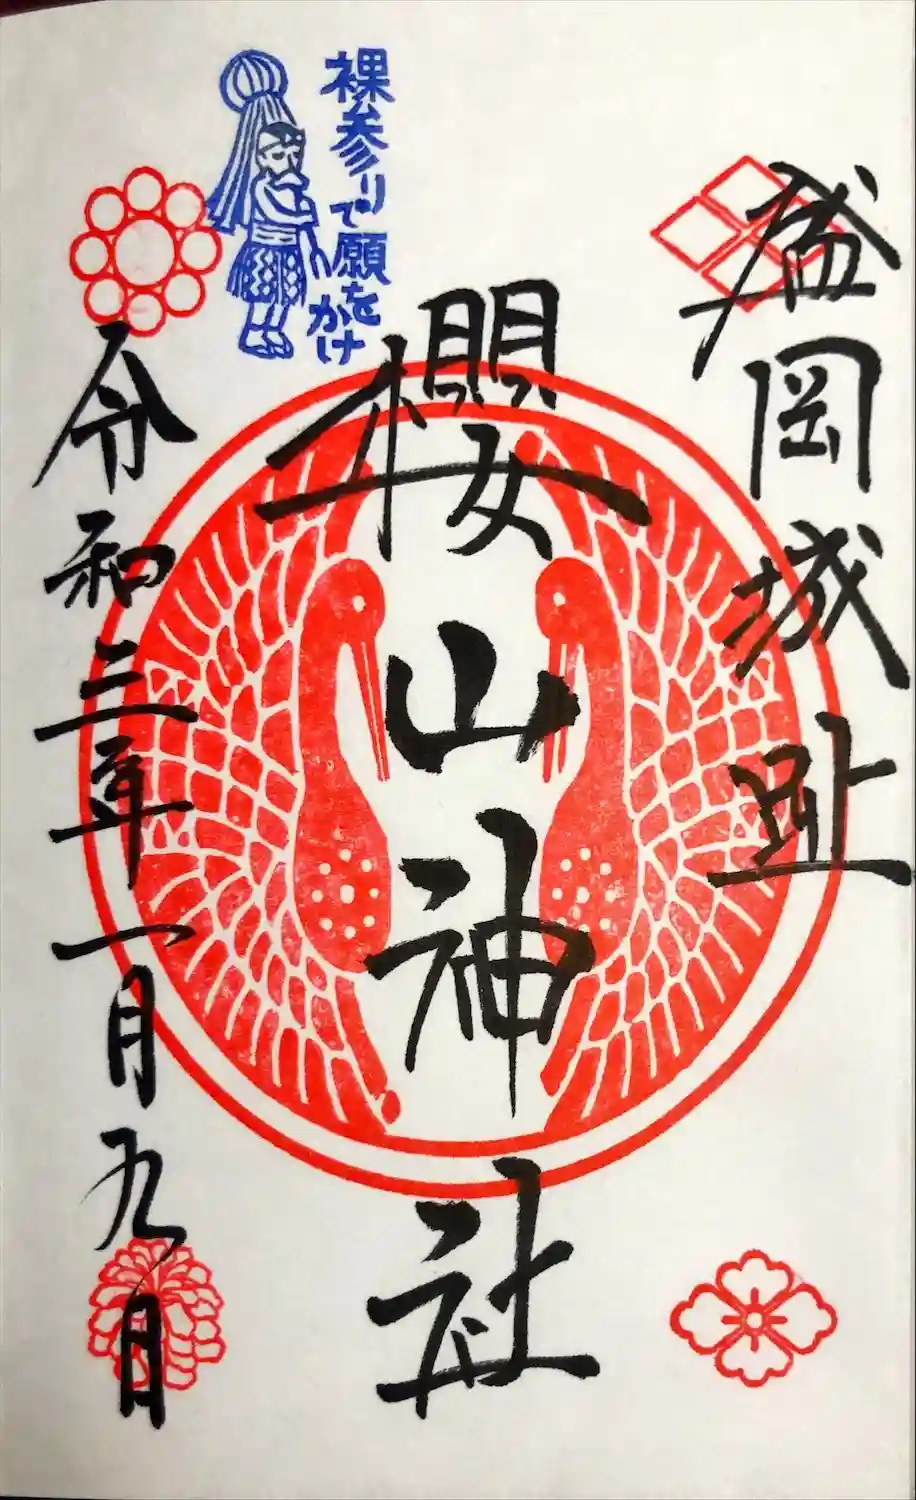 盛岡城趾
櫻山神社
裸参りで願をかけ
令和三年一月九日